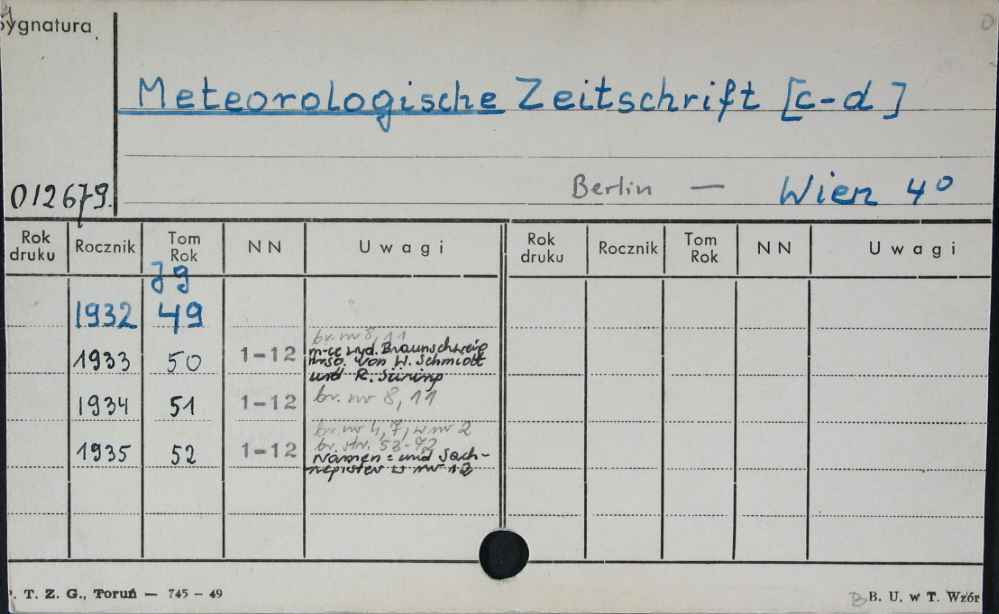 Sygnatura
Meteorologische Zeitschrift [c-d]
012679.
Berlin — Wien 4°
Rok druku Rocznik Tom Rok NN Uwagi Rok druku Rocznik Tom Rok NN Uwagi
Jg
1932 49
br. nr 8, 11
1933 50 1-12 m-ce wyd. Braunschweig
von W. Schmidt
und R. Süring
1934 51 1-12 br. nr 8, 11
br. nr 4, 7, w nr 2
1935 52 1-12 br. str. 53-72
Namen= und Sach-
register w nr 12
T. Z. G., Toruń — 745 - 49
B. U. w T. Wzór